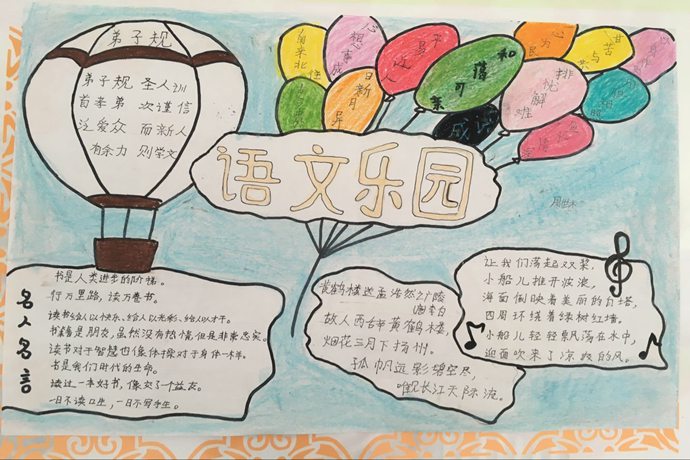 弟子规
弟子规 圣人训
首孝弟 次谨信
泛爱众 而新人
有余力 则学文
心想事成
平易近人
和蔼可亲
日新月异
排忧解难
成语
语文乐园
名人名言
书是人类进步的阶梯。
行万里路，读万卷书。
读书给人以快乐、给人以光彩、给人以才干。
书籍是朋友，虽然没有热情，但是非常忠实。
读书对于智慧也像体操对于身体一样。
书是我们时代的生命。
读过一本好书，像交了个益友。
一日不读口生，一日不写手生。
黄鹤楼送孟浩然之广陵
唐 李白
故人西辞黄鹤楼，
烟花三月下扬州。
孤帆远影碧空尽，
唯见长江天际流。
让我们荡起双桨，
小船儿推开波浪，
海面倒映着美丽的白塔，
四周环绕着绿树红墙。
小船儿轻轻飘荡在水中，
迎面吹来了凉爽的风。